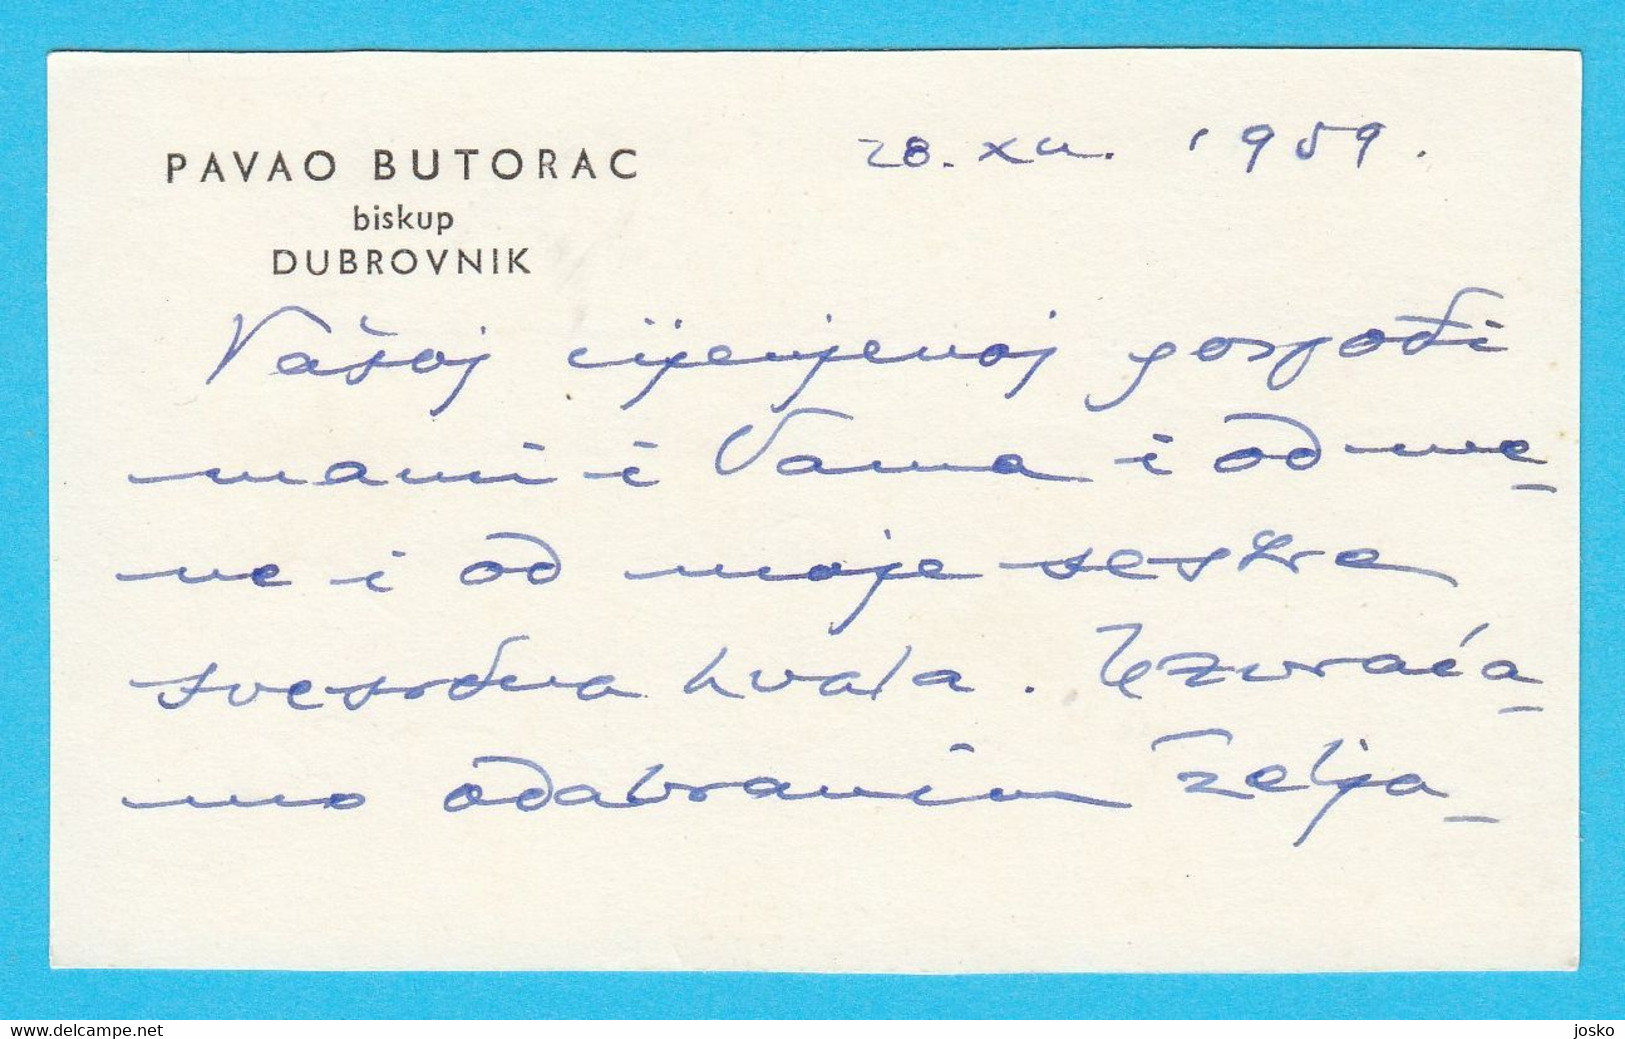 PAVAO BUTORAC
biskup
DUBROVNIK
28. XII. 1959.
Vašoj cijenjenoj gospođi
mami i Vama i od me-
ne i od moje sestre
svesrdna hvala. Uzvraća-
mo odabranim želja-
www.delcampe.net
josko